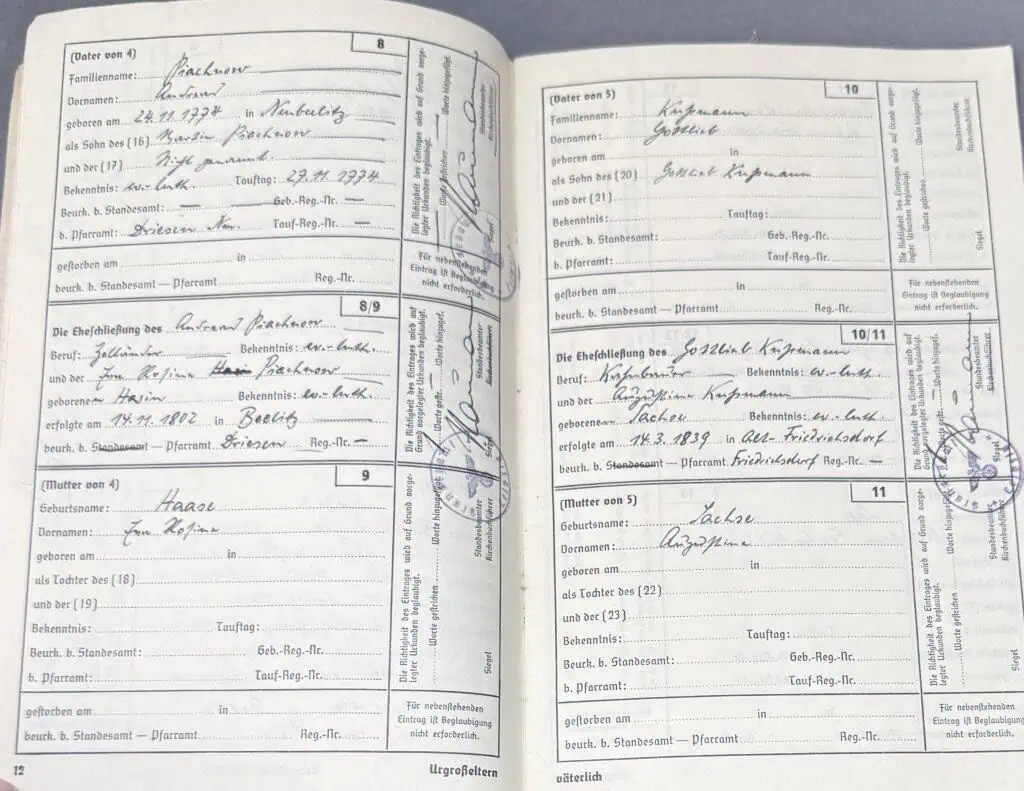 8
(Vater von 4)
Familienname: Piachnow
Vornamen: Andreas
geboren am 24.11.1774 in Neubeelitz
als Sohn des (16) Martin Piachnow
und der (17) Nicht genannt.
Bekenntnis: ev.-luth. Tauftag: 27.11.1774
Beurk. b. Standesamt: — Geb.-Reg.-Nr. —
b. Pfarramt: Driesen Nm. Tauf-Reg.-Nr. —
gestorben am in
beurk. b. Standesamt — Pfarramt Reg.-Nr.
Die Richtigkeit des Eintrages wird auf Grund vorge-
legter Urkunden beglaubigt.
Worte gestrichen Worte hinzugefügt.
Standesbeamter
Kirchenbuchführer
Siegel
Für nebenstehenden
Eintrag ist Beglaubigung
nicht erforderlich.
8/9
Die Eheschließung des Andreas Piachnow
Beruf: Bekenntnis: ev.-luth.
und der Eva Rosina Piachnow
geborenen Hasin Bekenntnis: ev.-luth.
erfolgte am 14.11.1802 in Beelitz
beurk. b. Standesamt — Pfarramt Driesen Reg.-Nr. —
Die Richtigkeit des Eintrages wird auf
Grund vorgelegter Urkunden beglaubigt.
Worte gestr. Worte hinzugef.
Standesbeamter
Kirchenbuchführer
Siegel
9
(Mutter von 4)
Geburtsname: Haase
Vornamen: Eva Rosina
geboren am in
als Tochter des (18)
und der (19)
Bekenntnis: Tauftag:
Beurk. b. Standesamt: Geb.-Reg.-Nr.
b. Pfarramt: Tauf-Reg.-Nr.
gestorben am in
beurk. b. Standesamt — Pfarramt Reg.-Nr.
Die Richtigkeit des Eintrages wird auf Grund vorge-
legter Urkunden beglaubigt.
Worte gestrichen Worte hinzugefügt
Standesbeamter
Kirchenbuchführer
Siegel
Für nebenstehenden
Eintrag ist Beglaubigung
nicht erforderlich.
12 Urgroßeltern
10
(Vater von 5)
Familienname: Kußmann
Vornamen: Gottlieb
geboren am in
als Sohn des (20) Gottlieb Kußmann
und der (21)
Bekenntnis: Tauftag:
Beurk. b. Standesamt: Geb.-Reg.-Nr.
b. Pfarramt: Tauf-Reg.-Nr.
gestorben am in
beurk. b. Standesamt — Pfarramt Reg.-Nr.
Die Richtigkeit des Eintrages wird auf Grund vorge-
legter Urkunden beglaubigt.
Worte gestrichen Worte hinzugefügt.
Standesbeamter
Kirchenbuchführer
Siegel
Für nebenstehenden
Eintrag ist Beglaubigung
nicht erforderlich.
10/11
Die Eheschließung des Gottlieb Kußmann
Beruf: Bekenntnis: ev.-luth.
und der Augustine Kußmann
geborenen Sachse Bekenntnis: ev.-luth.
erfolgte am 14.3.1839 in Alt-Friedrichsdorf
beurk. b. Standesamt — Pfarramt Friedrichsdorf Reg.-Nr. —
Die Richtigkeit des Eintrages wird auf
Grund vorgelegter Urkunden beglaubigt.
Worte gestr. Worte hinzugef.
Standesbeamter
Kirchenbuchführer
Siegel
11
(Mutter von 5)
Geburtsname: Sachse
Vornamen: Augustine
geboren am in
als Tochter des (22)
und der (23)
Bekenntnis: Tauftag:
Beurk. b. Standesamt: Geb.-Reg.-Nr.
b. Pfarramt: Tauf-Reg.-Nr.
gestorben am in
beurk. b. Standesamt — Pfarramt Reg.-Nr.
Die Richtigkeit des Eintrages wird auf Grund vorge-
legter Urkunden beglaubigt.
Worte gestrichen Worte hinzugefügt
Standesbeamter
Kirchenbuchführer
Siegel
Für nebenstehenden
Eintrag ist Beglaubigung
nicht erforderlich.
väterlich